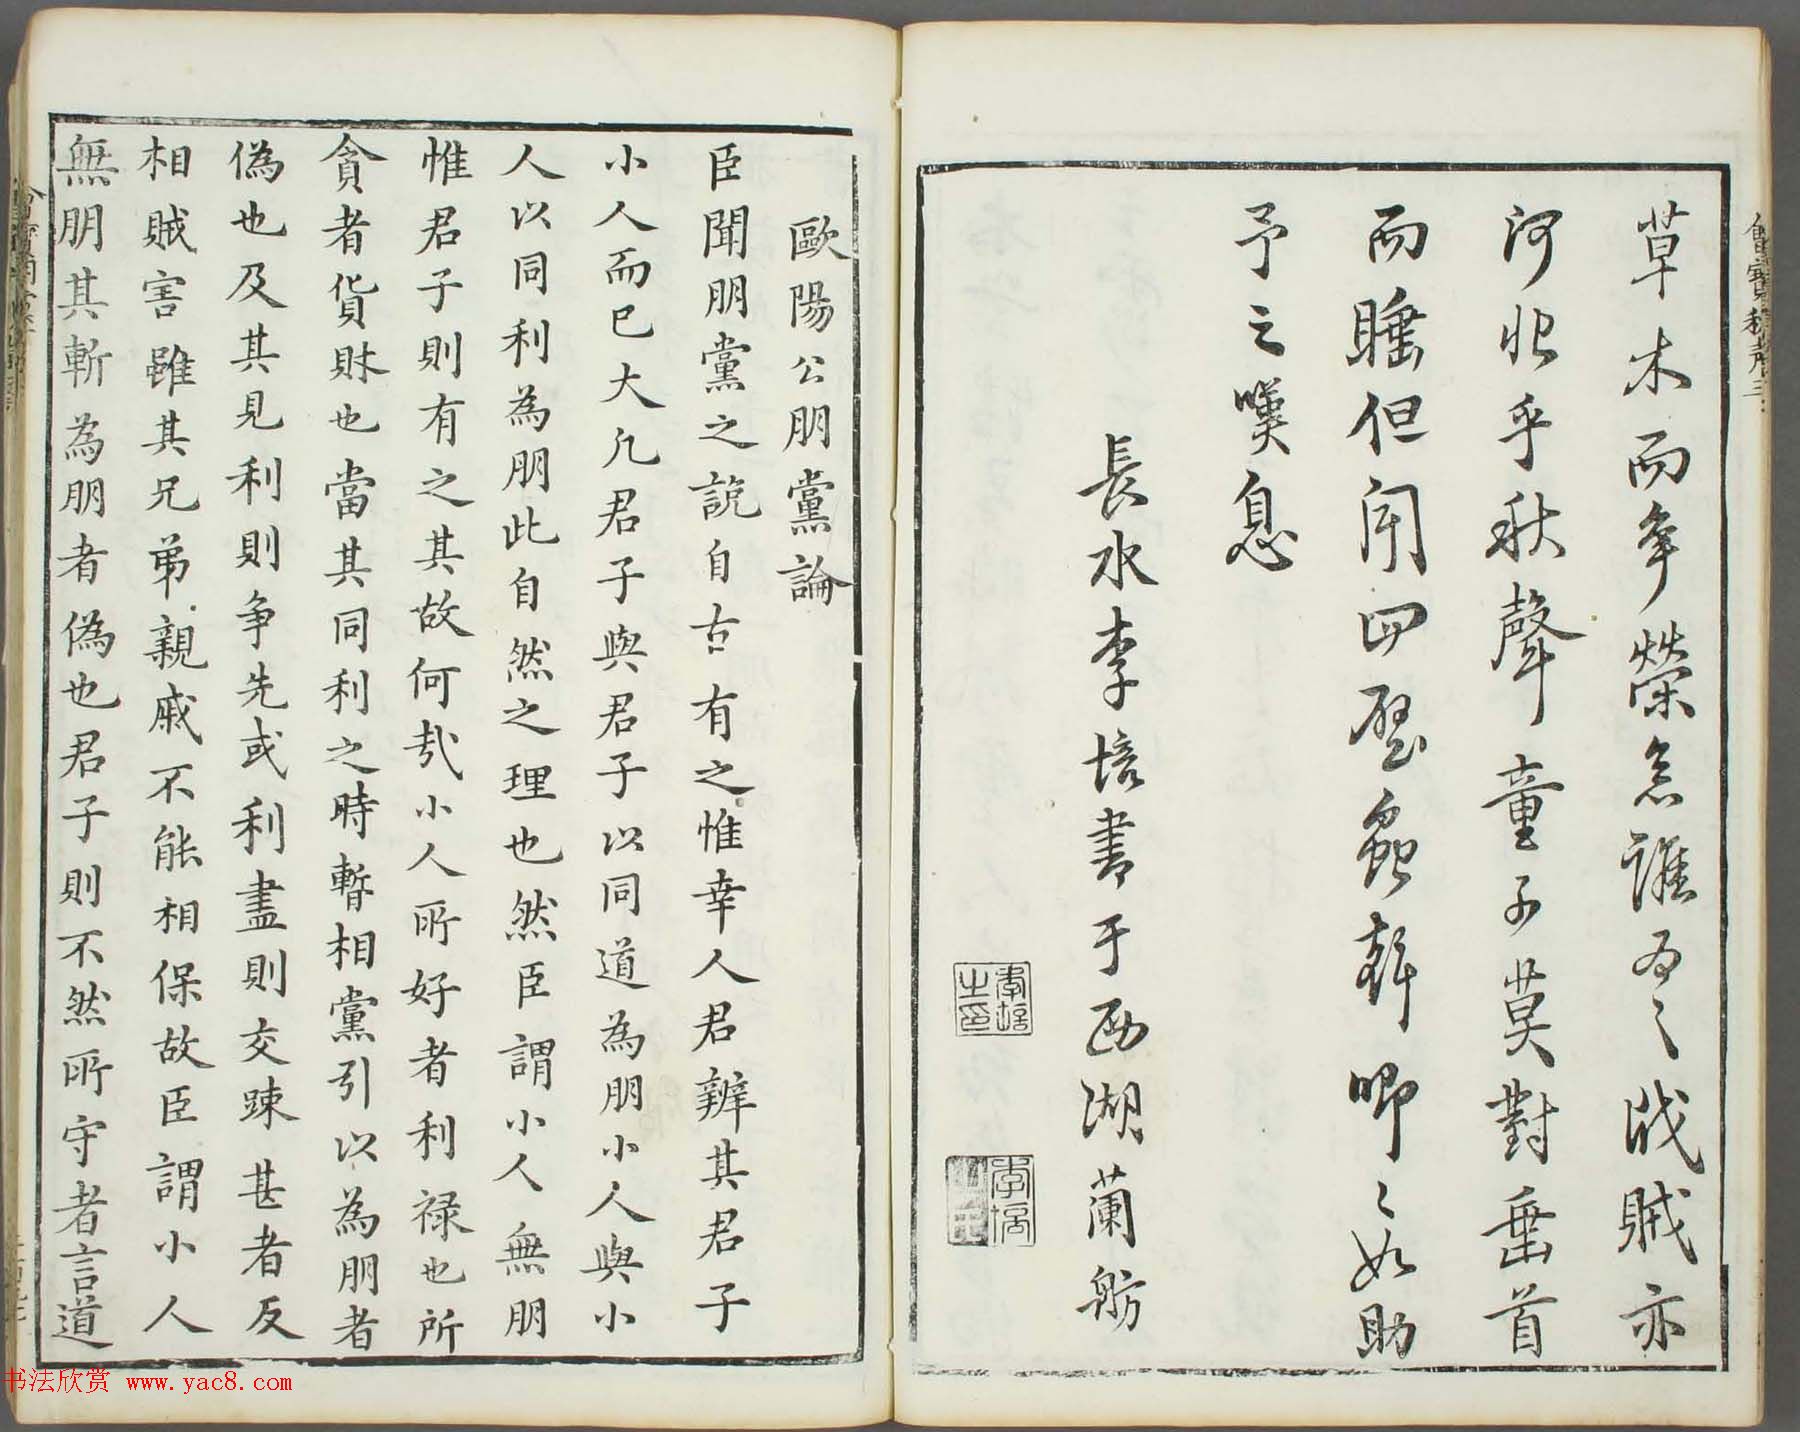 草木而爭榮念誰為之戕賊亦
何恨乎秋聲童子莫對垂首
而睡但聞四壁蟲聲唧〻如助
予之嘆息
長水李培書于西湖蘭舫
李培之印
歐陽公朋黨論
臣聞朋黨之說自古有之惟幸人君辨其君子
小人而已大凡君子與君子以同道為朋小人與小
人以同利為朋此自然之理也然臣謂小人無朋
惟君子則有之其故何哉小人所好者利祿也所
貪者貨財也當其同利之時暫相黨引以為朋者
偽也及其見利則爭先或利盡則交踈甚者反
相賊害雖其兄弟親戚不能相保故臣謂小人
無朋其暫為朋者偽也君子則不然所守者言道
书法欣赏 www.yac8.com